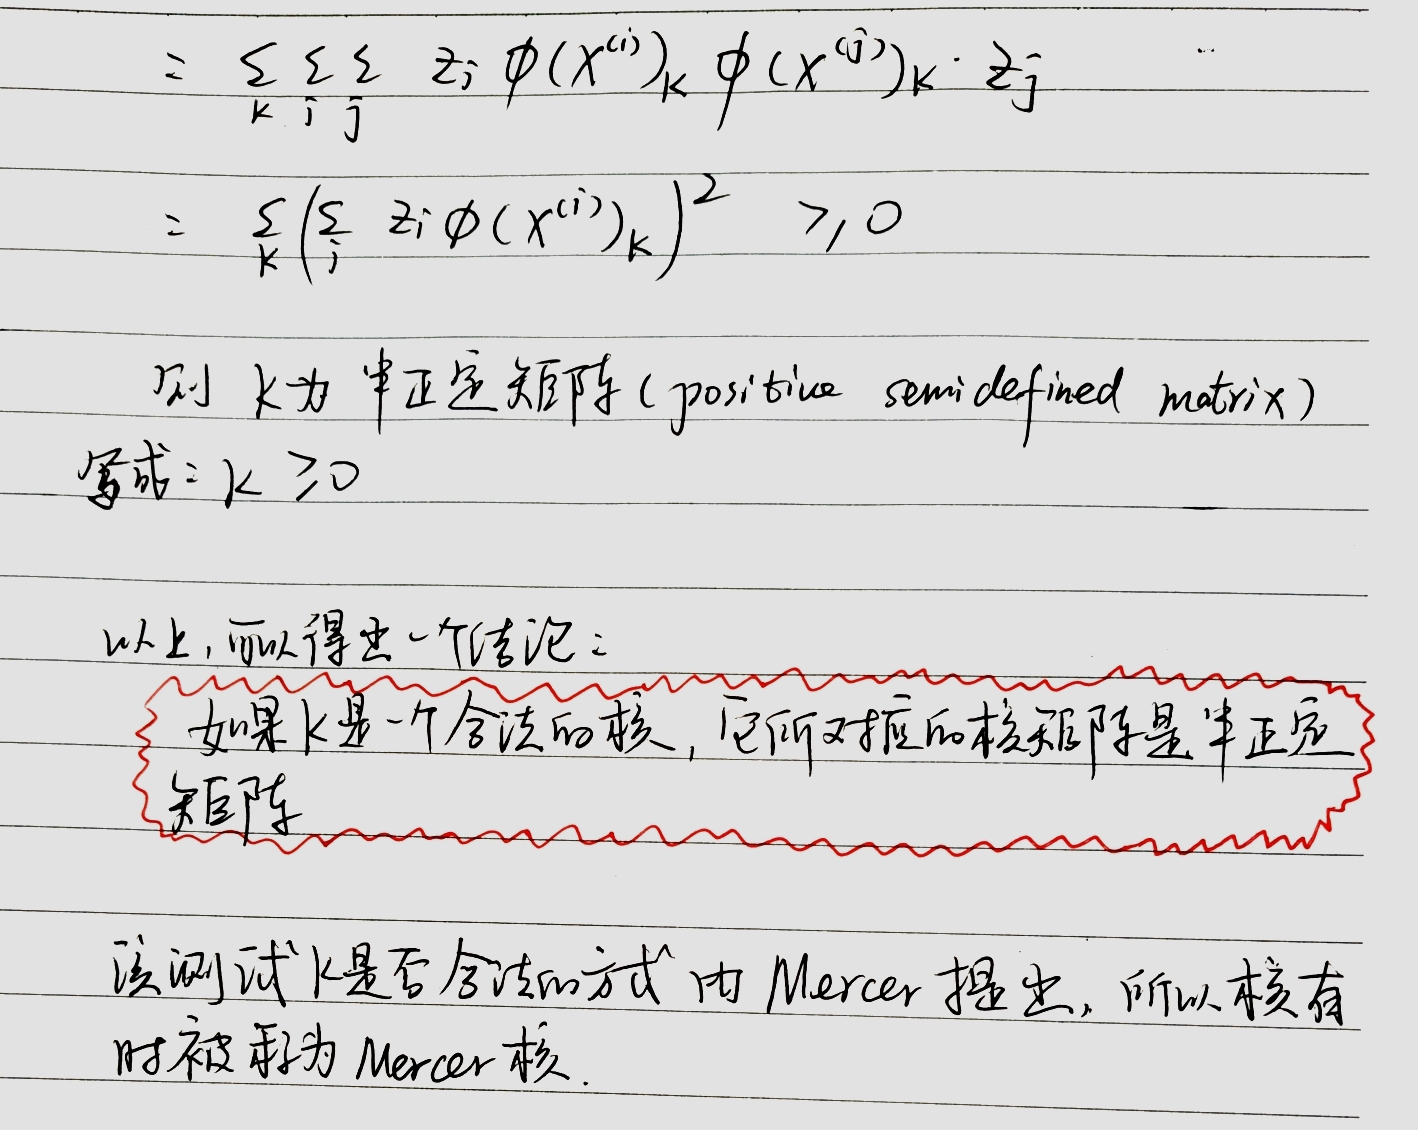 = ∑_k ∑_i ∑_j z_i φ(x^(i))_k φ(x^(j))_k · z_j
= ∑_k (∑_i z_i φ(x^(i))_k)^2 ≥ 0
则 K为 半正定矩阵(positive semidefined matrix)
写成: K ≥0
以上,可以得出一个结论:
如果K是一个合法的核,它所对应的核矩阵是半正定
矩阵
该测试K是否合法的方式由 Mercer 提出,所以核有
时被称为 Mercer 核.